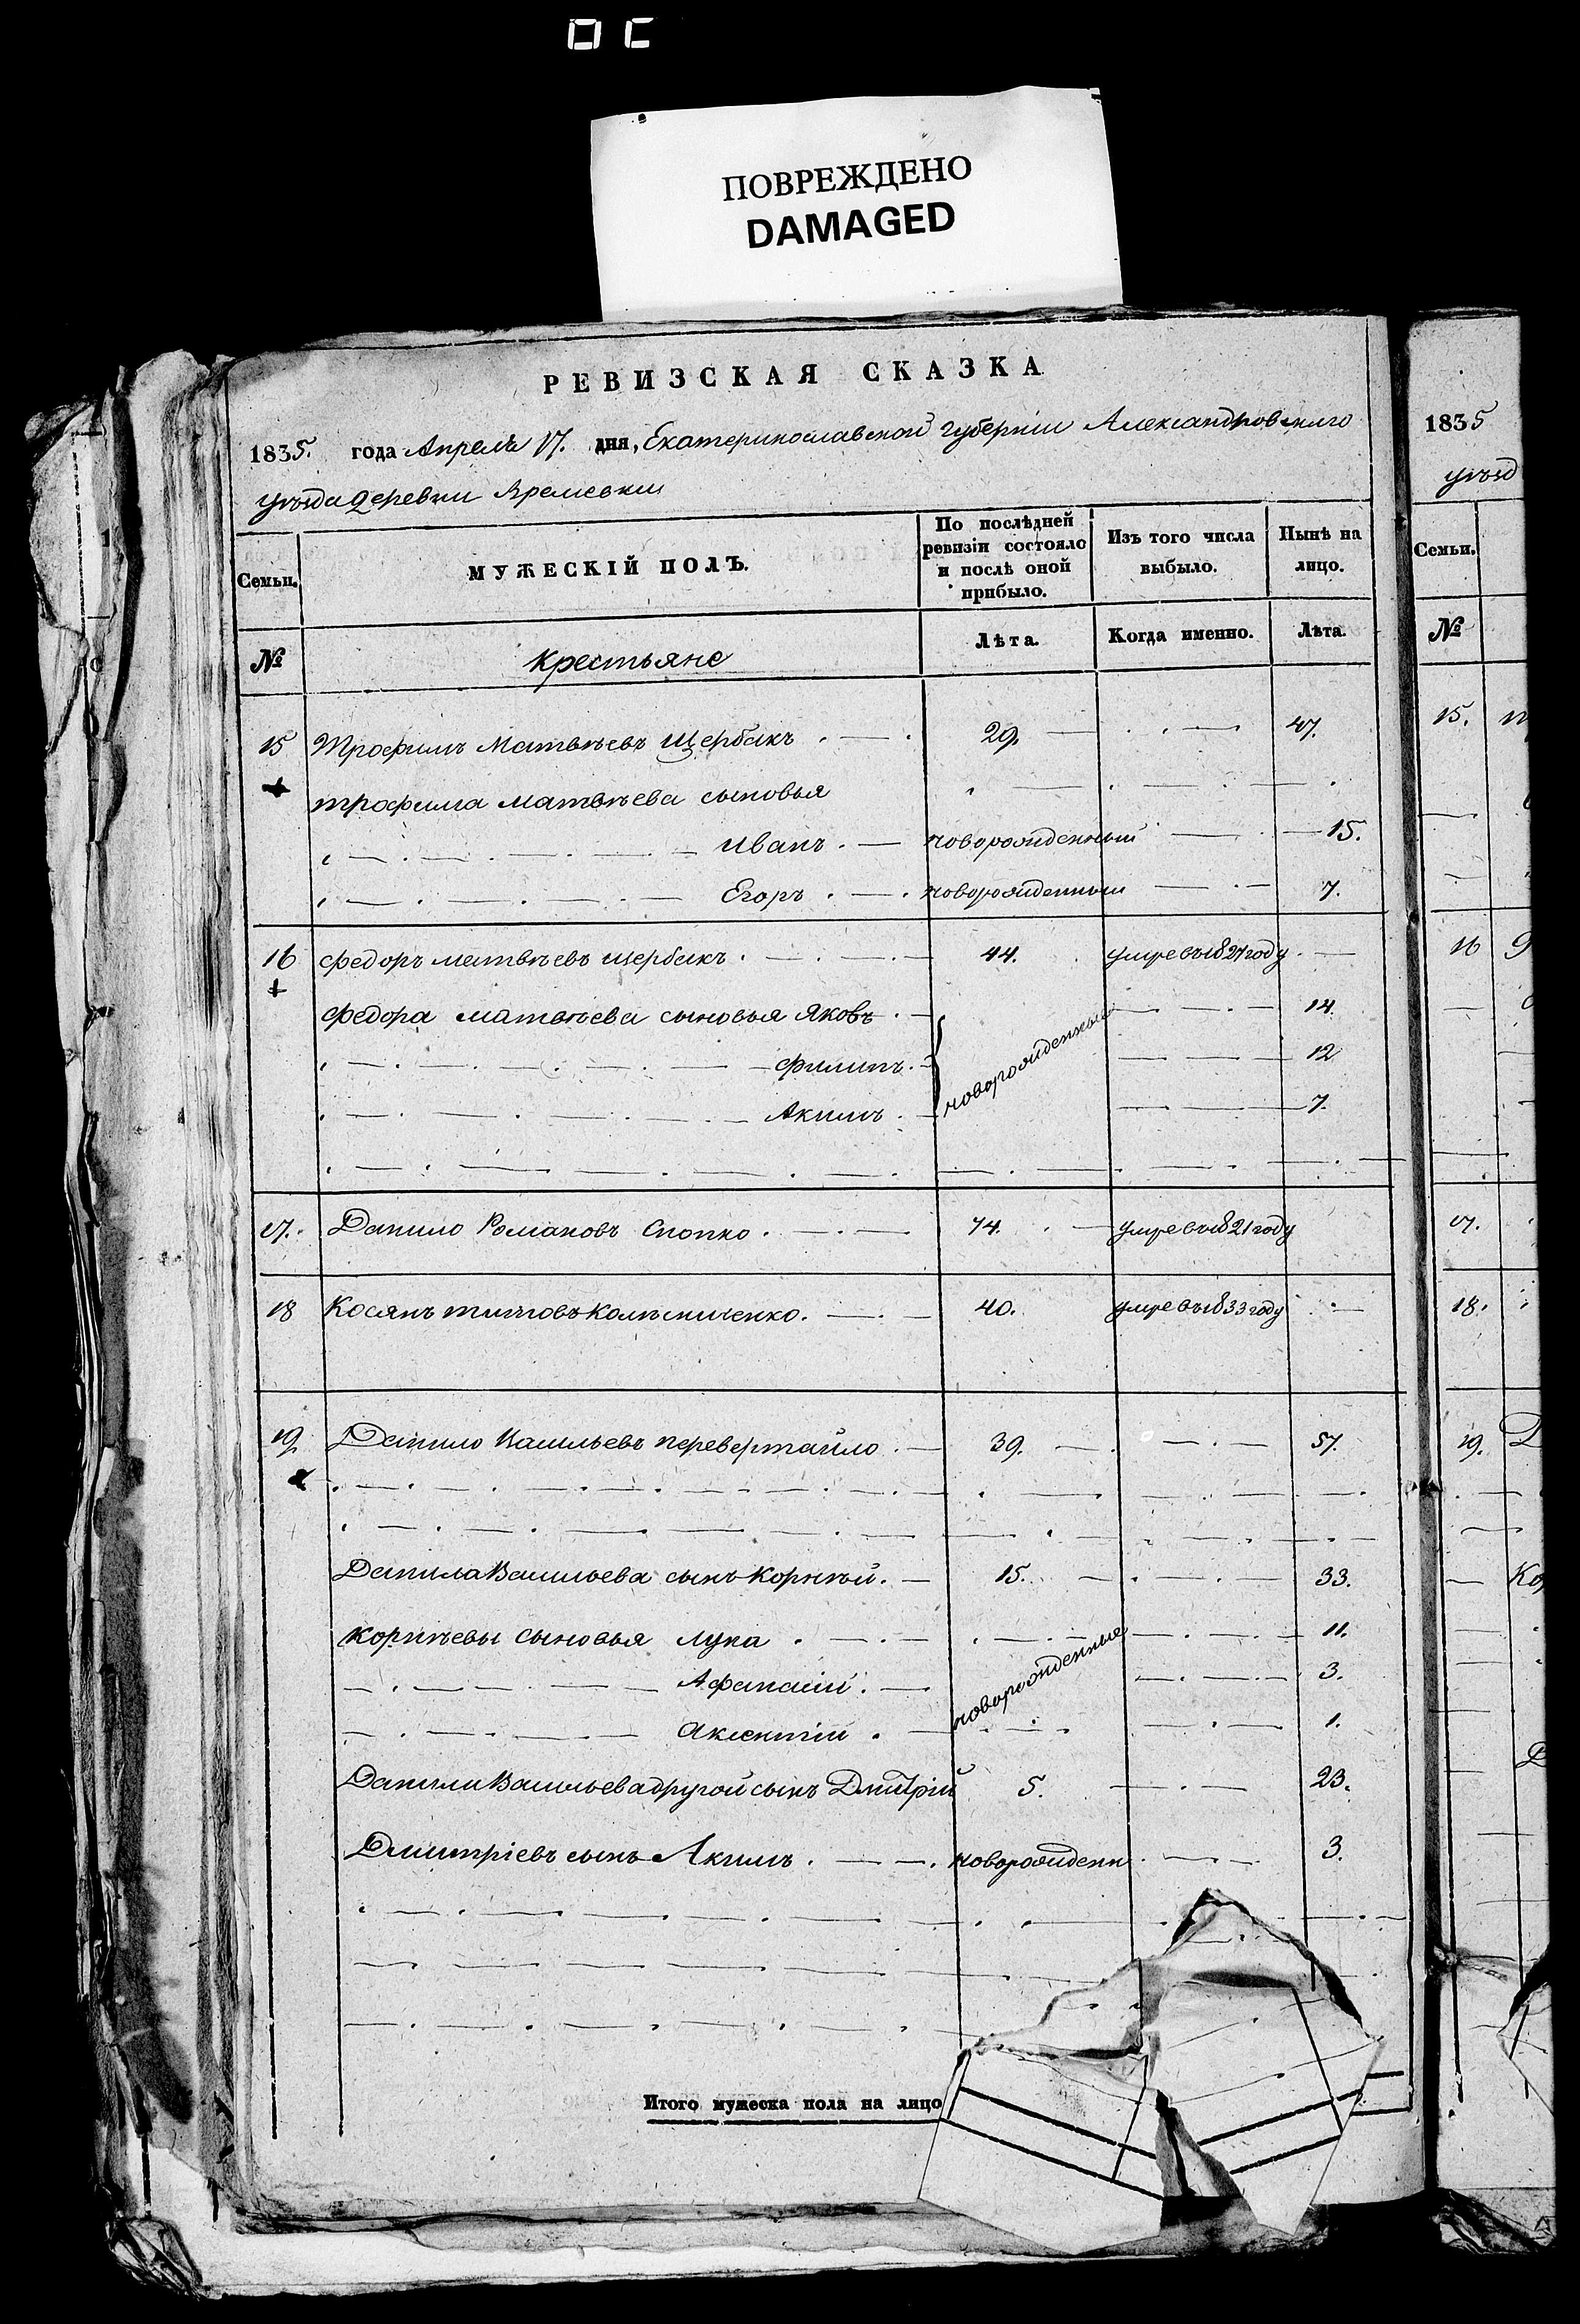 ПОВРЕЖДЕНО
DAMAGED
РЕВИЗСКАЯ СКАЗКА
1835. года Апреля 17. дня, Екатеринославской губернии Александровскаго
уѣзда деревни Времевки
Семьи. МУЖЕСКІЙ ПОЛЪ. По послѣдней ревизіи состояло и послѣ оной прибыло. Изъ того числа выбыло. Нынѣ на лицо.
№ крестьяне Лѣта. Когда именно. Лѣта.
15 Трофимъ Матвѣевъ Щербакъ 29. 47.
трофима матвѣева сыновья
Иванъ новорожденный 15.
Егоръ новорожденный 7.
16 федоръ матвѣевъ щербакъ 44. умре въ 1821 году
федора матвѣева сыновья Яковъ 14.
филипъ новорожденные 12
Акимъ 7.
17. Данило Романовъ Сопко 74. умре въ 1821 году
18 Косянъ титовъ Колѣсниченко 40. умре въ 1833 году
19. Данило Васильевъ перевертайло 39. 57.
Данила Васильева сынъ Корнѣй 15. 33.
корнѣевы сыновья лука 11.
Афанасій новорожденные 3.
Аксентій 1.
Данилы Васильева другой сынъ Дмитрій 5. 23.
Дмитріевъ сынъ Акимъ новорожденн 3.
Итого мужеска пола на лицо
1835
уѣзд
Семьи.
№
15.
16
17.
18.
19. Д
Ко